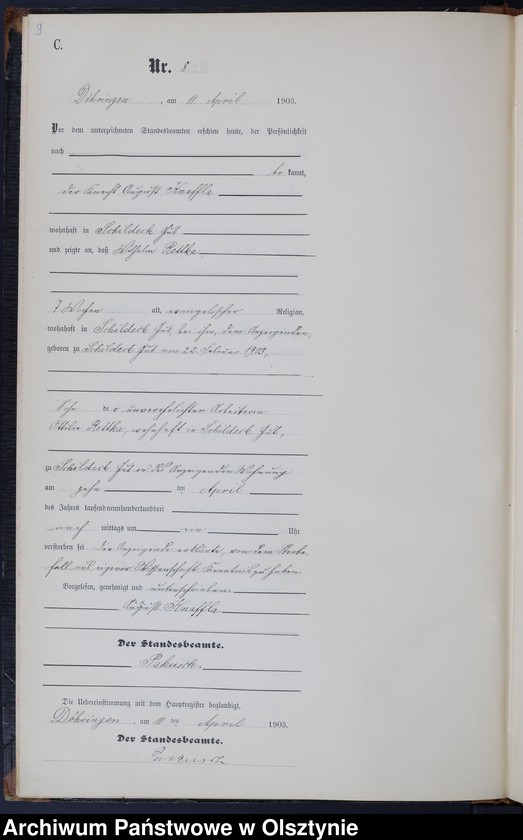 9
C.
Nr. 8
Döhringen, am 11 April 1903.
Vor dem unterzeichneten Standesbeamten erschien heute, der Persönlichkeit
nach
be kannt,
der Knecht August Knaffla
wohnhaft in Schildeck Gut
und zeigte an, daß Wilhelm Rettka
7 Wochen alt, evangelischer Religion,
wohnhaft in Schildeck Gut, bei ihm, dem Anzeigenden,
geboren zu Schildeck Gut am 22 Februar 1903,
Sohn der unverehelichten Arbeiterin
Ottilie Rettka, wohnhaft in Schildeck Gut,
zu Schildeck Gut in des Anzeigenden Wohnung
am zehn ten April
des Jahres tausendneunhundertunddrei
nach mittags um ein Uhr
verstorben sei. Der Anzeigende erklärte, von dem Sterbe
fall aus eigener Wissenschaft Kenntnis zu haben.
Vorgelesen, genehmigt und unterschrieben
August Knaffla
Der Standesbeamte.
Die Uebereinstimmung mit dem Hauptregister beglaubigt.
Döhringen, am 11 ten April 1903.
Der Standesbeamte.
Archiwum Państwowe w Olsztynie